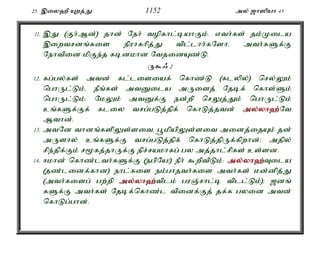 25 இலைஹி யுறத்து 1152 அல் ஜாஸியா 45
11. இது (குர்ஆன்) தான் நேர் வழிகாட்டியாகும். எவர்கள் தம்முடைய
இறைவசனங்களை நிராகரித்து விட்டார்களோ, அவர்களுக்கு
நோவினை மிகுந்த கடினமான வேதனையுண்டு.
ருகூஃ 2
12. கப்பல்கள் அவன் கட்டளையைக் கொண்டு (கடலில்) செல்லும்
பொருட்டும், நீங்கள் அவனுடைய அருளைத் தேடிக் கொள்ளும்
பொருட்டும், மேலும் அவனுக்கு நன்றி செலுத்தும் பொருட்டும்
உங்களுக்குக் கடலை வசப்படுத்திக் கொடுத்தவன் அல்லாஹ்வே
ஆவான்.
13. அவனே வானங்களிலுள்ளவை, பூமியிலுள்ளவை அனைத்தையும் தன்
அருளால் உங்களுக்கு வசப்படுத்திக் கொடுத்திருக்கிறான்; அதில்
சிந்திக்கும் சமூகத்தாருக்கு நிச்சயமாகப் பல அத்தாட்சிகள் உள்ளன.
14. ஈமான் கொண்டவர்களுக்கு (நபியே!) நீர் கூறிவிடும்: அல்லாஹ்வுடைய
(தண்டனைக்கான) நாட்களை நம்பாதவர்களை அவர்கள் மன்னித்து
(அவர்களைப் பற்றி அல்லாஹ்விடம் பரஞ்சாட்டி விடட்டும்); ஜனங்
களுக்கு அவர்கள் தேடிக்கொண்ட வினைக்குத் தக்க பலனை அவன்
கொடுப்பான்.